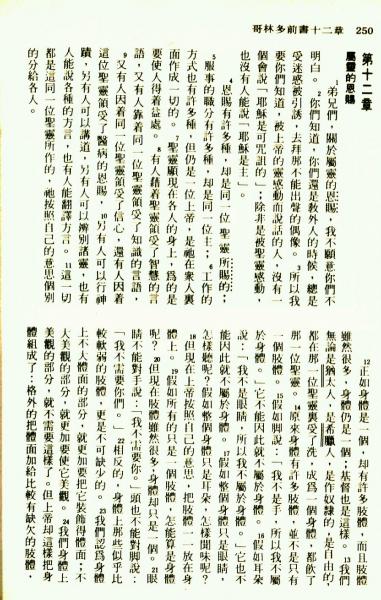 哥林多前書十二章 250
第十二章
屬靈的恩賜
1 弟兄們，關於屬靈的恩賜，我不願意你們不
明白。2 你們知道，你們還是教外人的時候，總是
受迷惑被引誘，去拜那不能出聲的偶像。3 所以我
要你們知道，被上帝的靈感動而說話的人，沒有一
個會說「耶穌是可咒詛的」；除非是被聖靈感動，
也沒有人能說「耶穌是主」。
4 恩賜有許多種，却是同一位聖靈所賜的；
5 服事的職分有許多種，却是同一位主；6 工作的
方式也有許多種，但仍是一位上帝，是祂在衆人裏
面作成一切的。7 聖靈顯現在各人的身上，爲的是
要使人得着益處。8 有人藉着聖靈領受了智慧的言
語，又有人靠着同一位聖靈領受了知識的言語，
9 又有人因着同一位聖靈領受了信心，還有人因着
這位聖靈領受了醫病的恩賜，10 另有人可以行神
蹟，另有人可以講道，另有人可以辨別諸靈，也有
人能說各種的方言，也有人能翻譯方言。11 這一切
都是這同一位聖靈所作的，祂按照自己的意思個別
的分給各人。
12 正如身體是一個，却有許多肢體，而且肢體
雖然很多，身體仍是一個；基督也是這樣。13 我們
無論是猶太人，是希臘人，是作奴隸的，是自由的，
都在那一位聖靈裏受了洗，成爲一個身體，都飲了
那一位聖靈。14 原來身體有許多肢體，並不是只有
一個肢體。15 假如脚說：「我不是手，所以我不屬
於身體。」它不能因此就不屬於身體。16 假如耳朶
說：「我不是眼睛，所以我不屬於身體。」它也不
能因此就不屬於身體。17 假如整個身體只是眼睛，
怎樣聽呢？假如整個身體只是耳朶，怎樣聞味呢？
18 但現在上帝按照自己的意思，把肢體一一放在身
體上。19 假如所有的只是一個肢體，怎能算是身體
呢？20 但現在肢體雖然很多，身體却只是一個。21 眼
睛不能對手說：「我不需要你。」頭也不能對脚說：
「我不需要你們。」22 相反的，身體上那些似乎比
較軟弱的肢體，更是不可缺少的。23 我們認爲身體
上不大體面的部分，就更加要把它裝飾得體面；不
大美觀的部分，就更加要使它美觀。24 我們身體上
美觀的部分，就不需要這樣了。但上帝却這樣把身
體組成了：格外的把體面加給比較有缺欠的肢體，